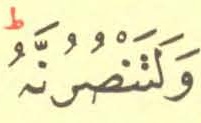 وَلَتَنْصُرُنَّهُ ؕ